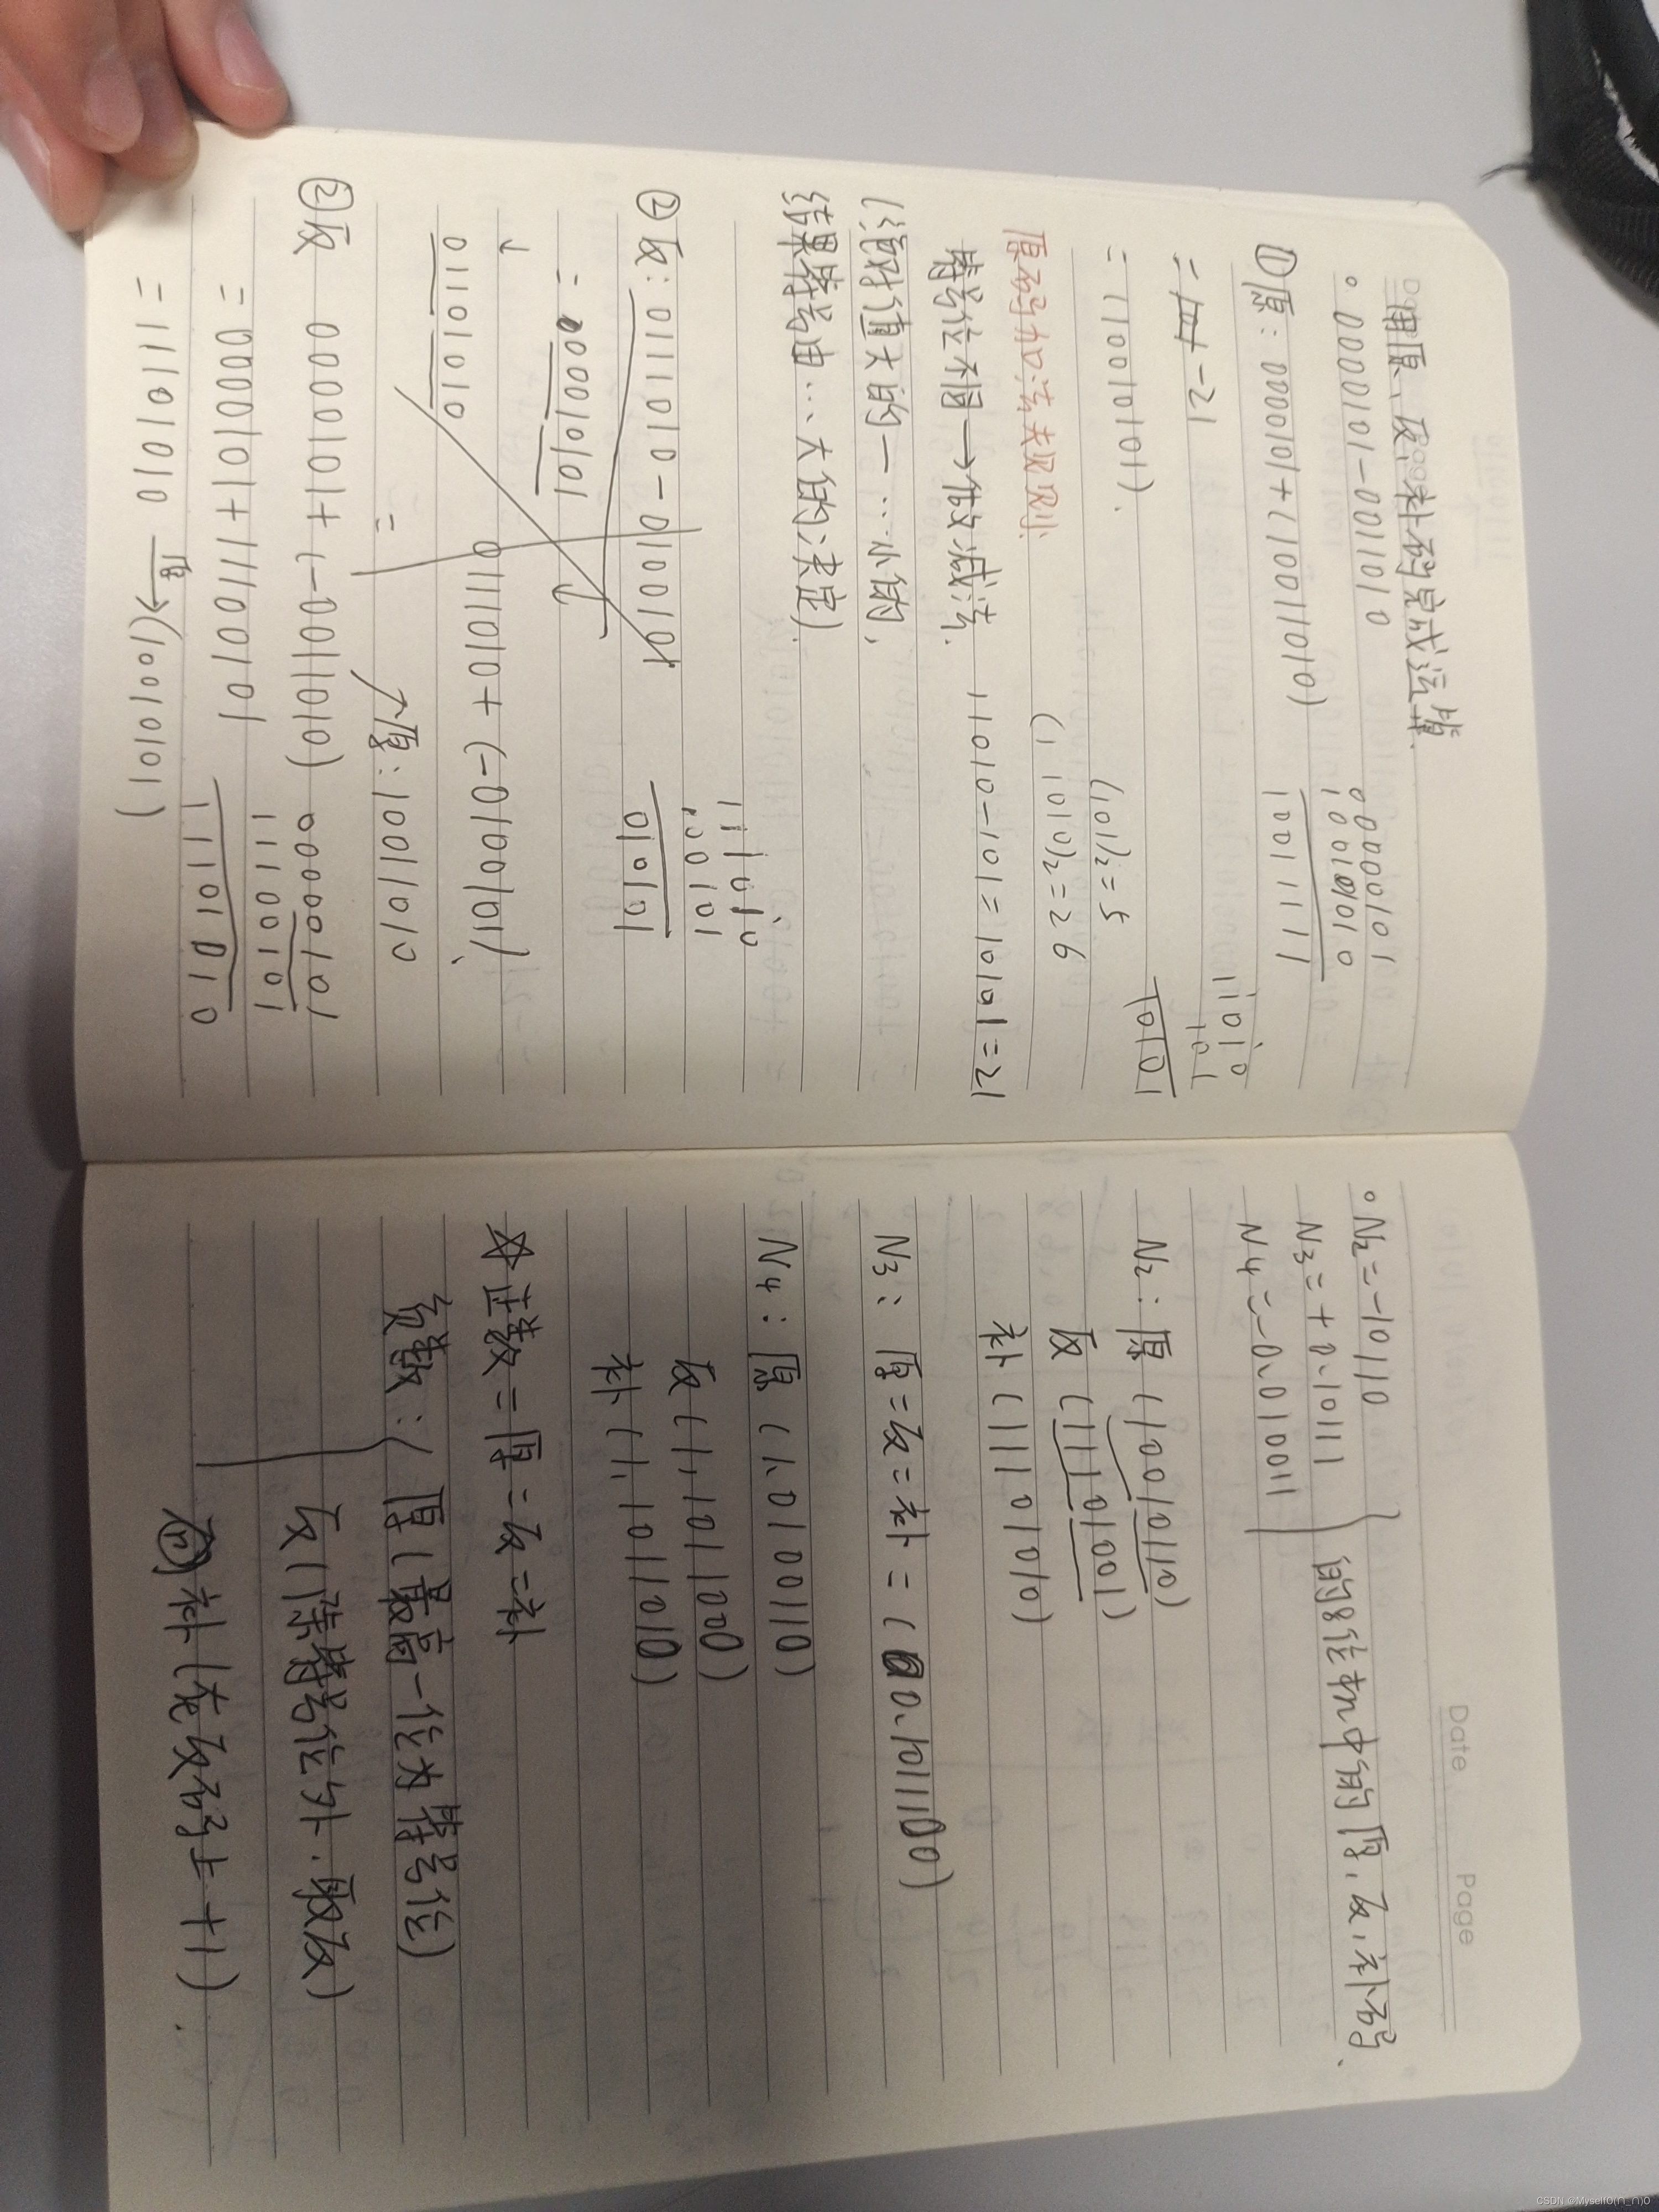 用原、反、补码完成运算.
。0000101-0011010
①原：0000101+(10011010)
00000101
10011010
10011111
= -21
11010
101
10101
=(10010101).
(101)₂=5
(11010)₂=26
原码加法规则:
符号位不同→做减法. 11010-101=10101=21
(绝对值大的一…小的,
结果符号由…大的决定).
②反：0111010-0100101
111010
100101
010101
=00010101
0111010+(-0100101)
01101010
=
原:10011010
②反 0000101+(-0011010)
=00000101+11100101
00000101
11100101
11101010
=11101010 原→(10010101)
Date Page
。N2=-10110
N3=+0.10111
N4=-0.010011
的8位字长中的原,反,补码.
N2：原(10010110)
反(11101001)
补(11101010)
N3：原=反=补=(0.1011100)
N4：原(1.0100110)
反(1.1011001)
补(1.1011010)
☆正数=原=反=补
负数：(原(最高一位为符号位)
反(除符号位外.取反)
补(在反码末+1)
CSDN @MyselfO(∩_∩)O